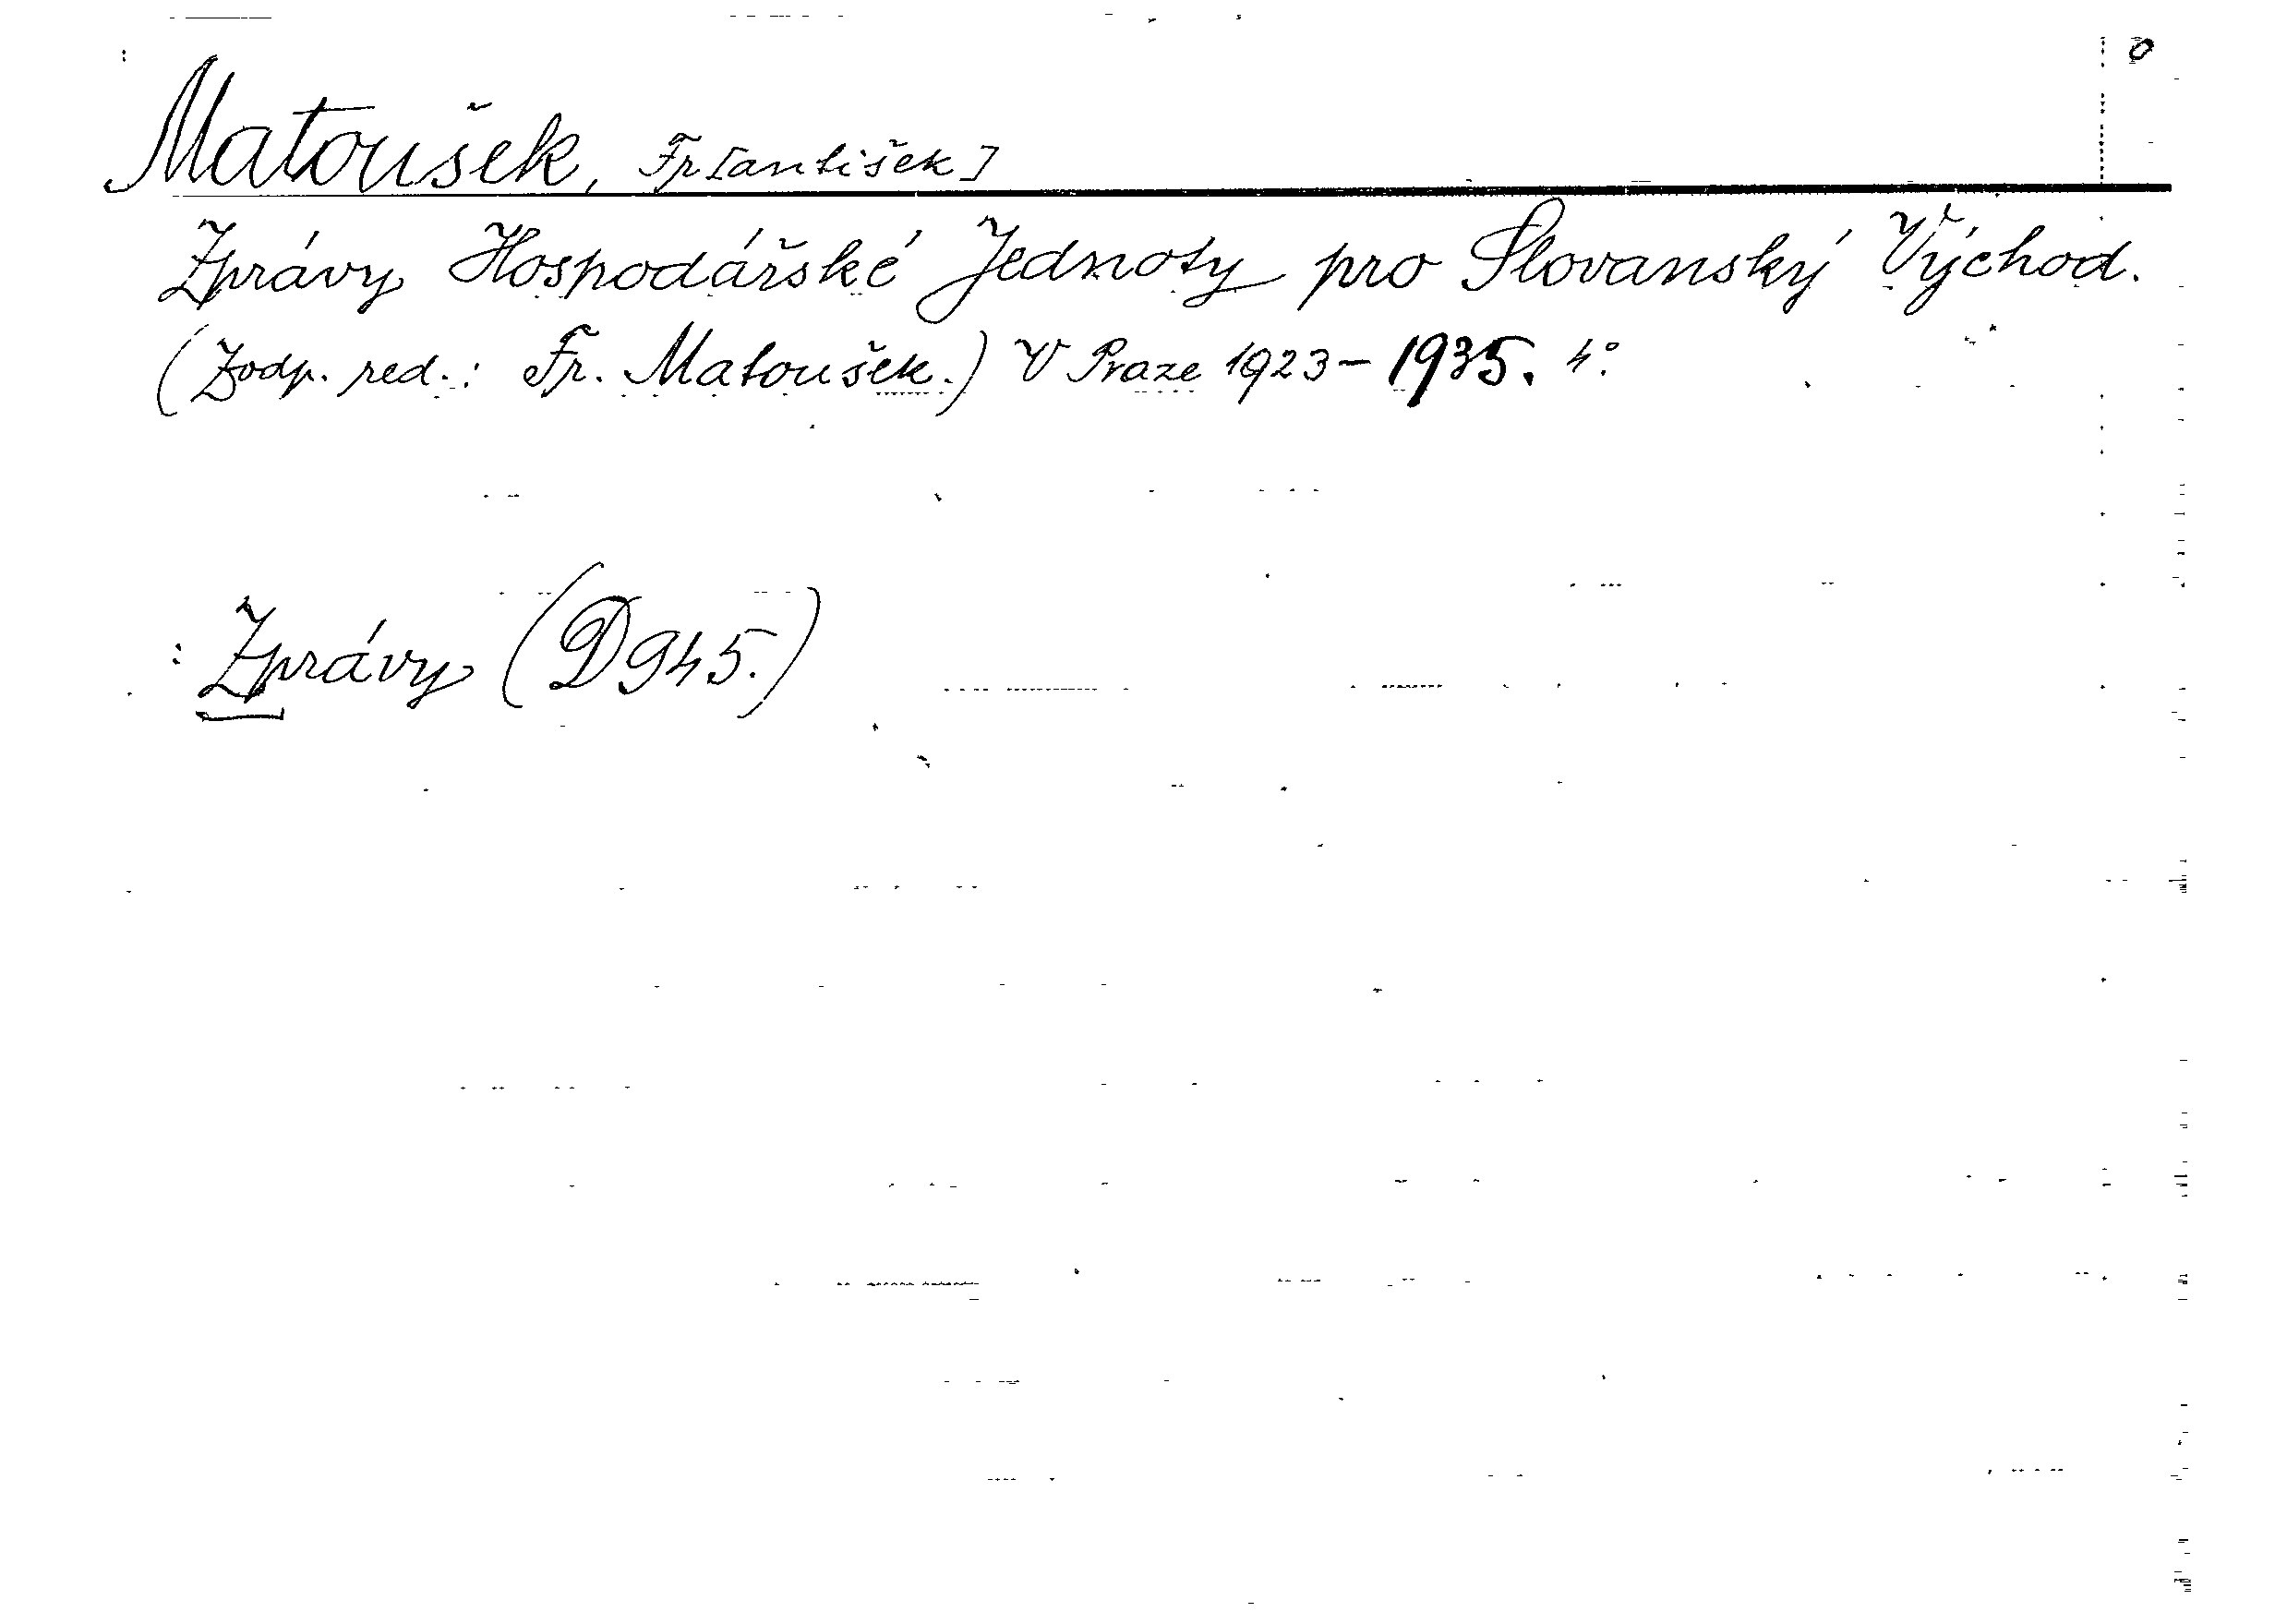 Matoušek, Fr[antišek]
Zprávy Hospodářské Jednoty pro Slovanský Východ.
(Zodp. red.: Fr. Matoušek.) V Praze 1923-1935. 4°.
: Zprávy (D945.)